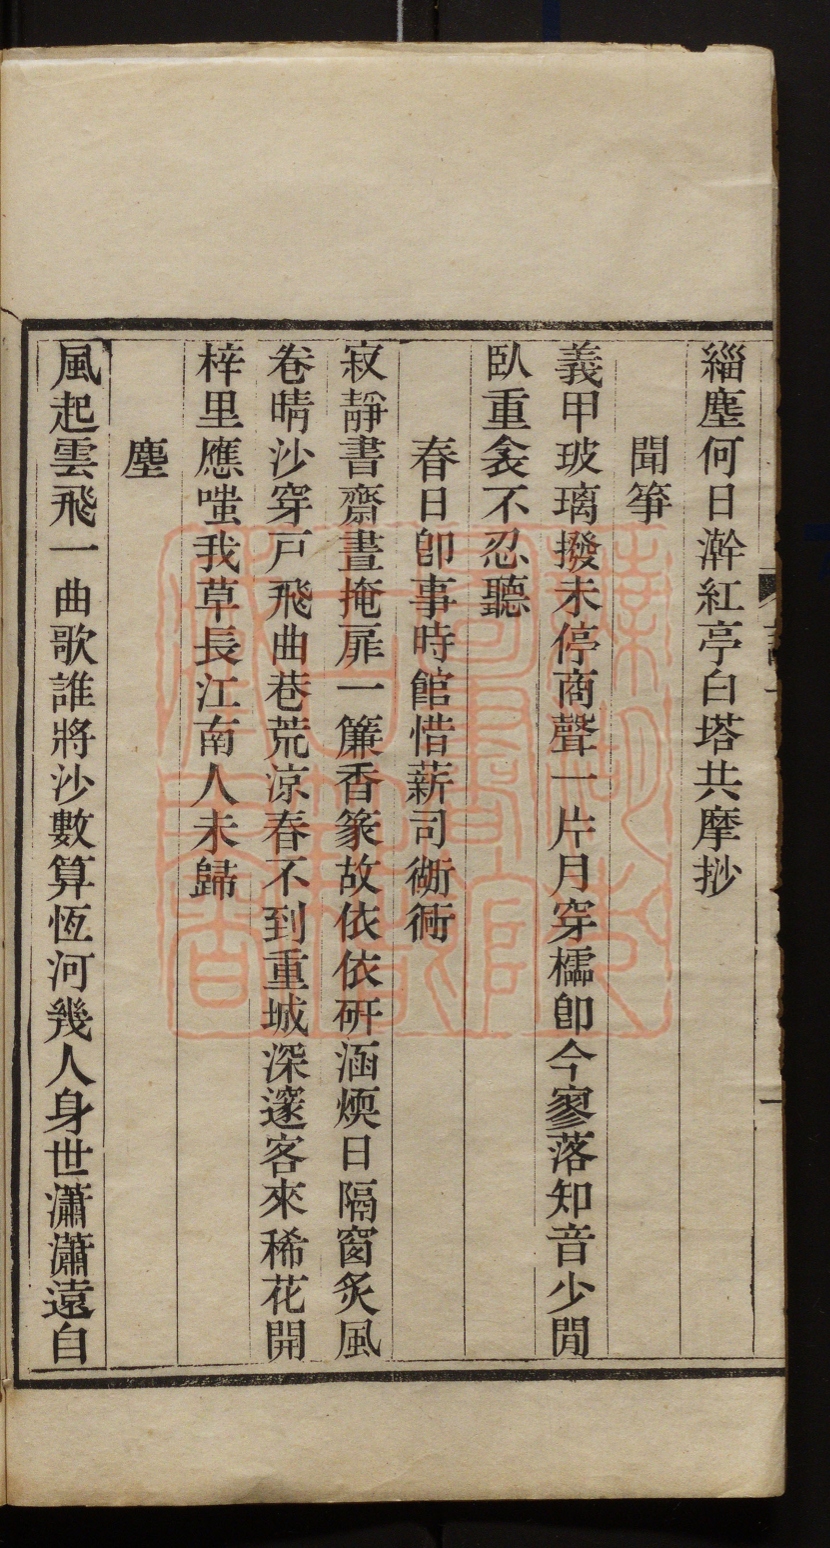 緇塵何日澣紅亭白塔共摩抄
聞箏
義甲玻璃撥未停商聲一片月穿櫺卽今寥落知音少閒
臥重衾不忍聽
春日卽事時館惜薪司衚衕
寂靜書齋晝掩扉一簾香篆故依依硏涵煗日隔窗炙風
卷晴沙穿戸飛曲巷荒涼春不到重城深邃客來稀花開
梓里應嗤我草長江南人未歸
塵
風起雲飛一曲歌誰將沙數算恆河幾人身世瀟瀟遠自